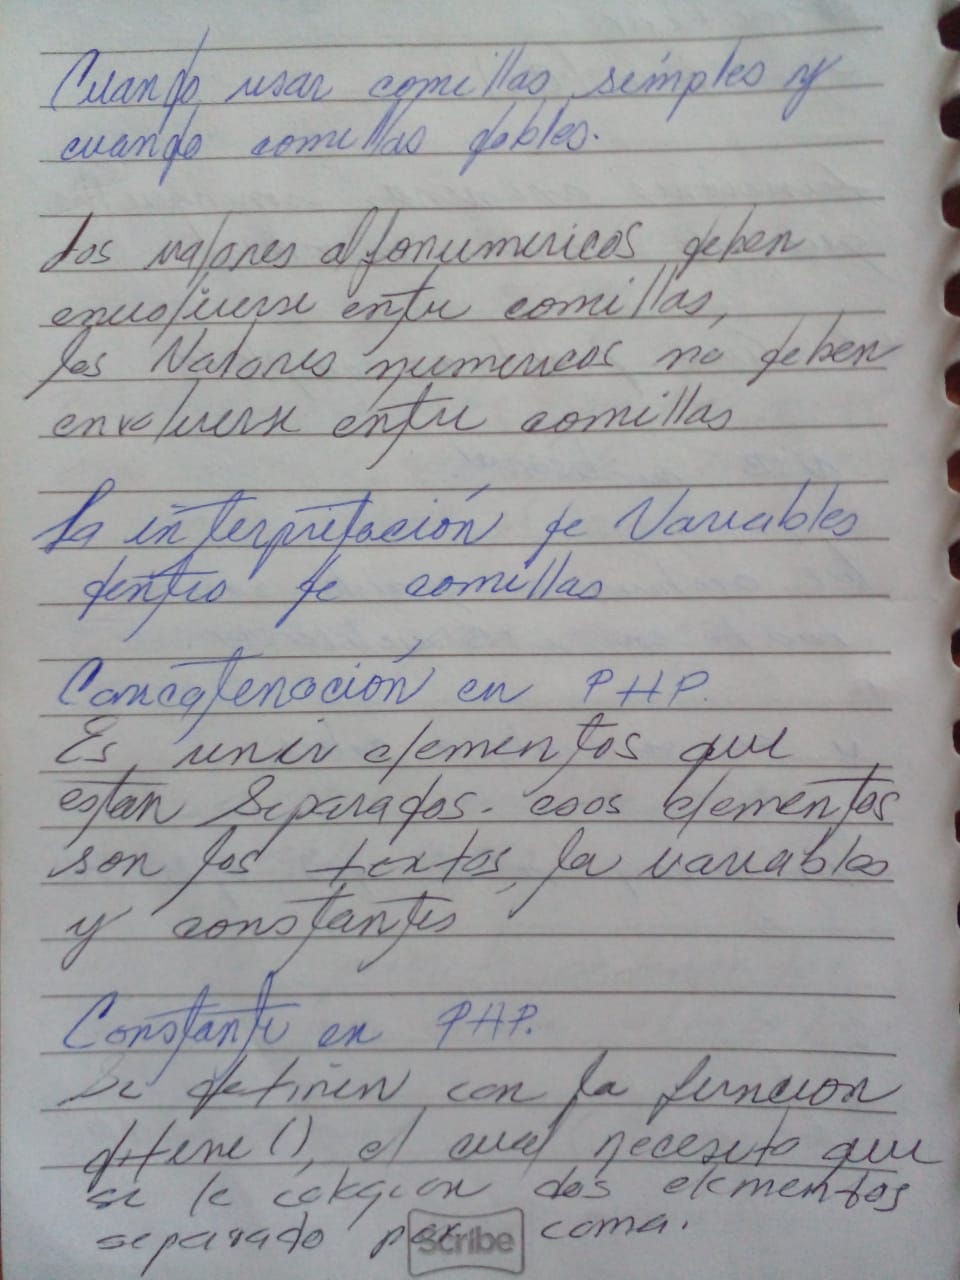 Cuando usar comillas simples y
cuando comillas dobles.
Los valores alfanumericos deben
envolverse entre comillas,
los Valores numericos no deben
envolverse entre comillas
La interpretación de Variables
dentro de comillas
Concatenación en PHP.
Es unir elementos que
estan Separados. esos elementos
son los textos, la variables
y constantes
Constante en PHP.
Se definen con la funcion
define(), el cual necesita que
se le coloquen dos elementos
separado por coma.
Scribe